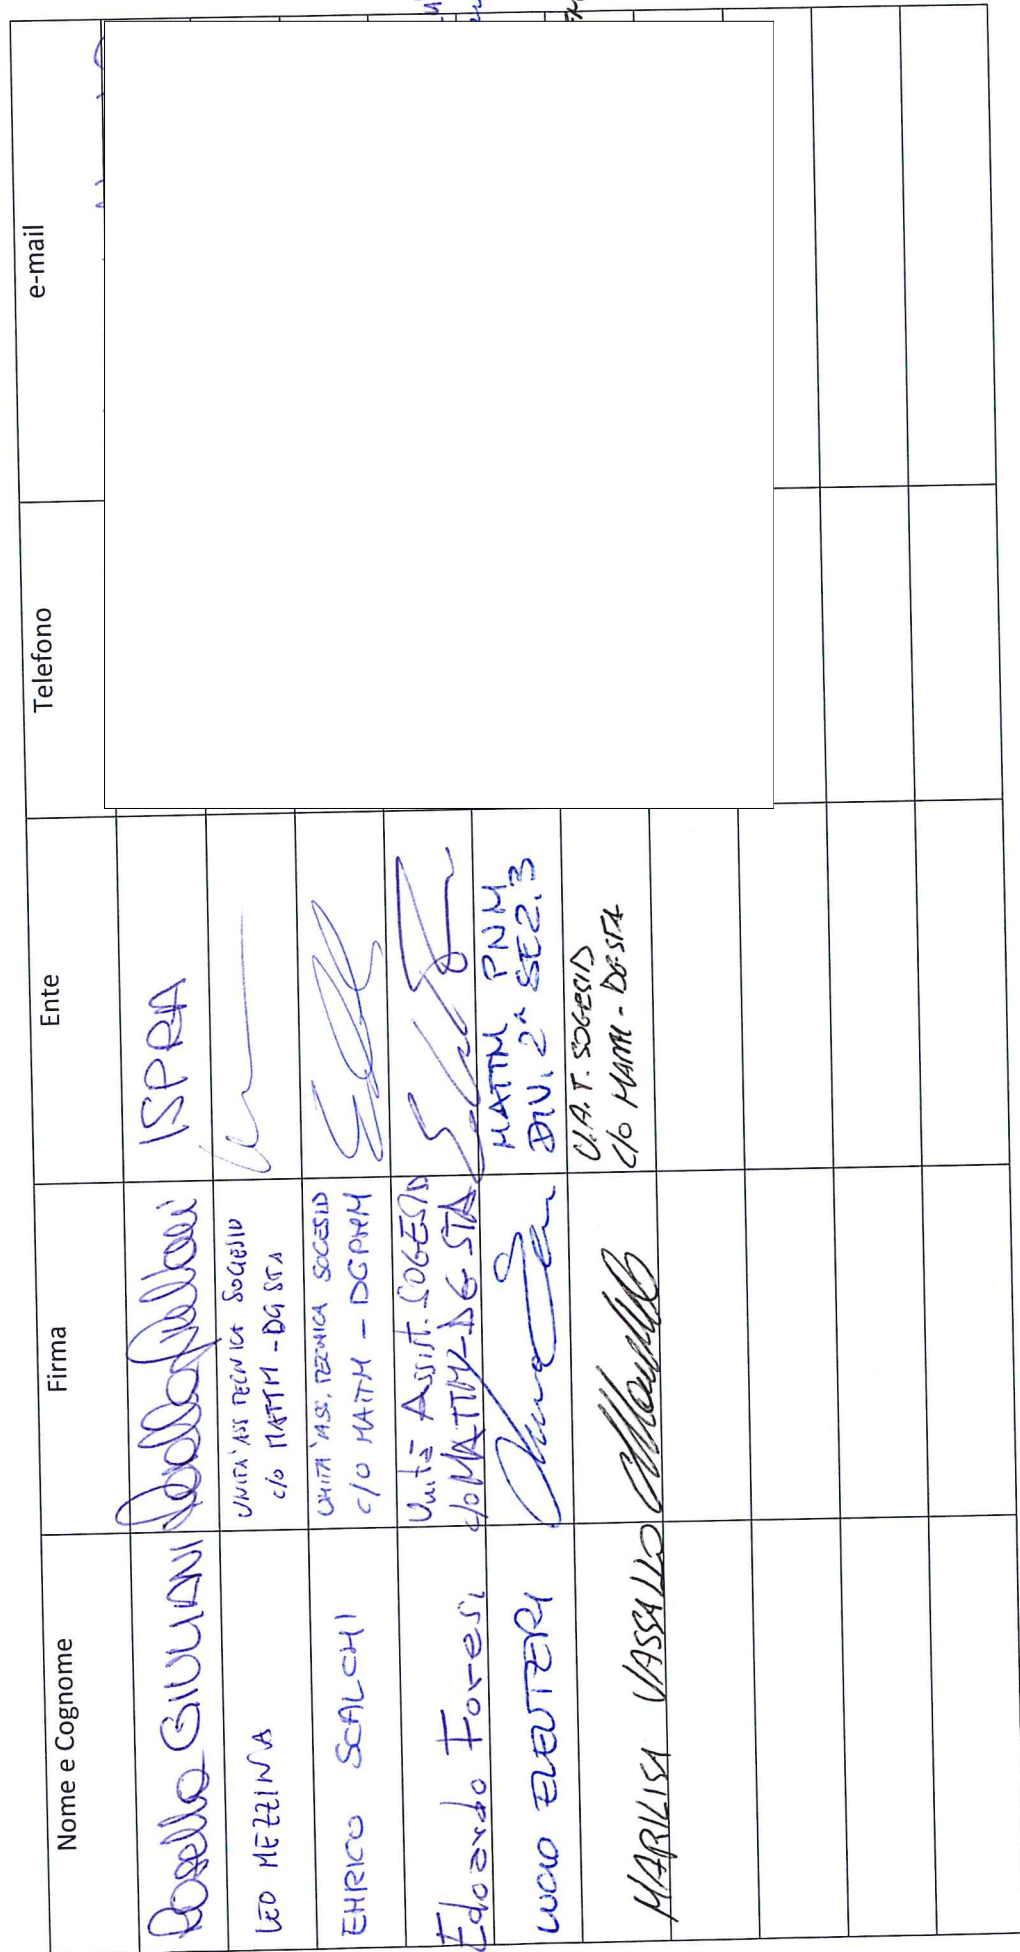 Nome e Cognome Firma Ente Telefono e-mail
Rosella GIULIANI ISPRA
LEO MEZZINA UNITA' ASS TECNICA SOGESID
c/o MATTM - DG STA
ENRICO SCALCHI UNITA' ASS. TECNICA SOGESID
c/o MATTM - DGPNM
Edoardo Foresi Unità Assist. SOGESID
c/o MATTM - DG STA
LUCIO ELEUTERI MATTM PNM
DIV. 2^ SEZ. 3
MARILISA VASSALLO U.A.T. SOGESID
c/o MATTM - DG STA